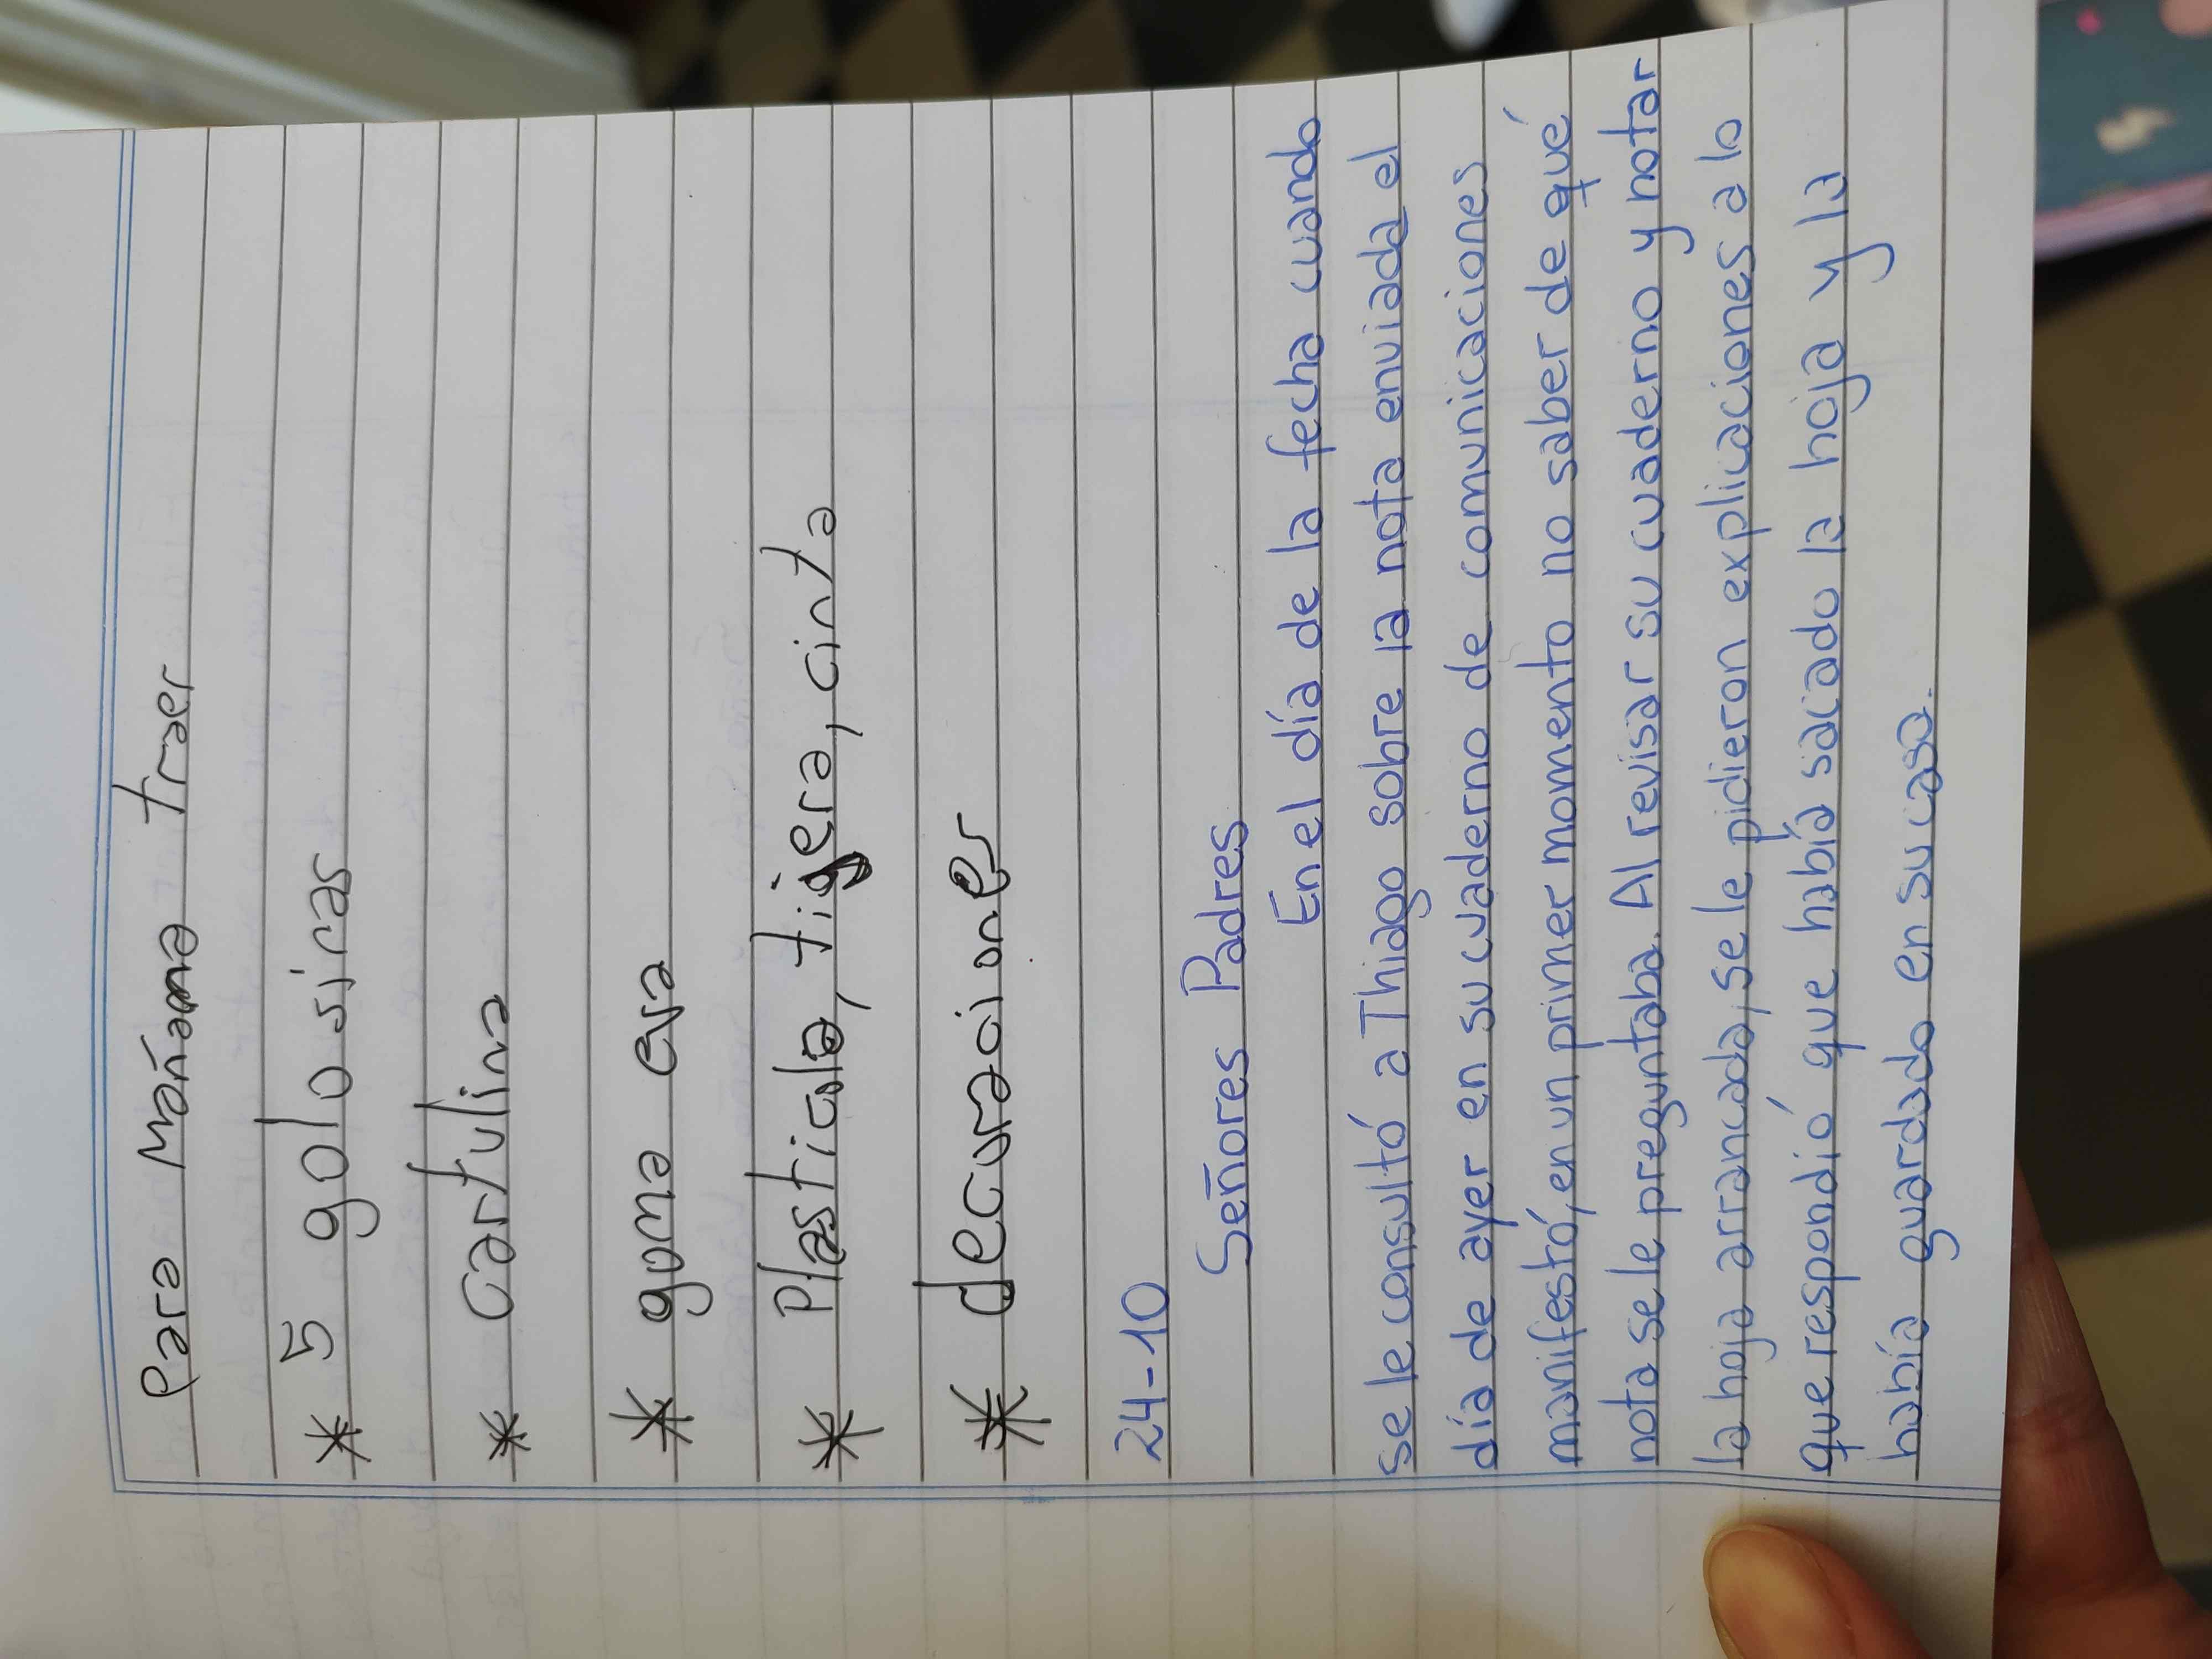 Para Mañama traer
* 5 golosinas
* cartulina
* goma eva
* Plasticola, tigera, cinta
* decoraciones
24-10
Señores Padres
En el día de la fecha cuando
se le consultó a Thiago sobre la nota enviada el
día de ayer en su cuaderno de comunicaciones
manifestó, en un primer momento no saber de qué
nota se le preguntaba. Al revisar su cuaderno y notar
la hoja arrancada, se le pidieron explicaciones a lo
que respondió que había sacado la hoja y la
había guardado en su casa.